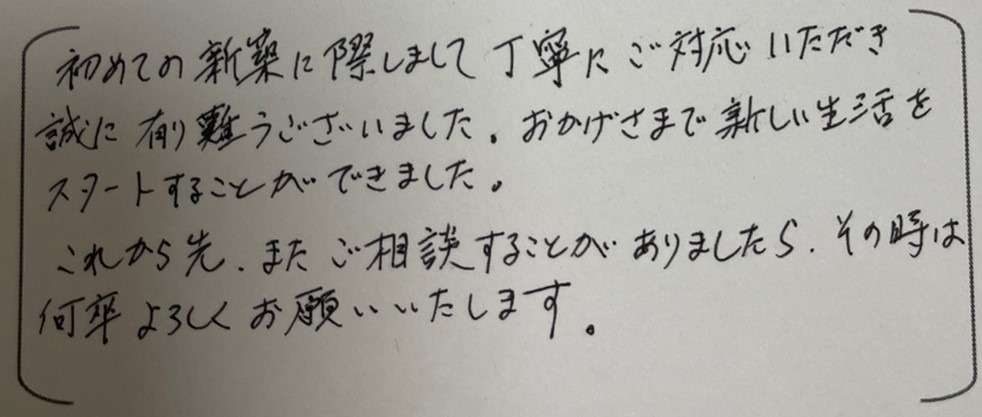 初めての新築に際しまして丁寧にご対応いただき
誠に有り難うございました。おかげさまで新しい生活を
スタートすることができました。
これから先、またご相談することがありましたら、その時は
何卒よろしくお願いいたします。